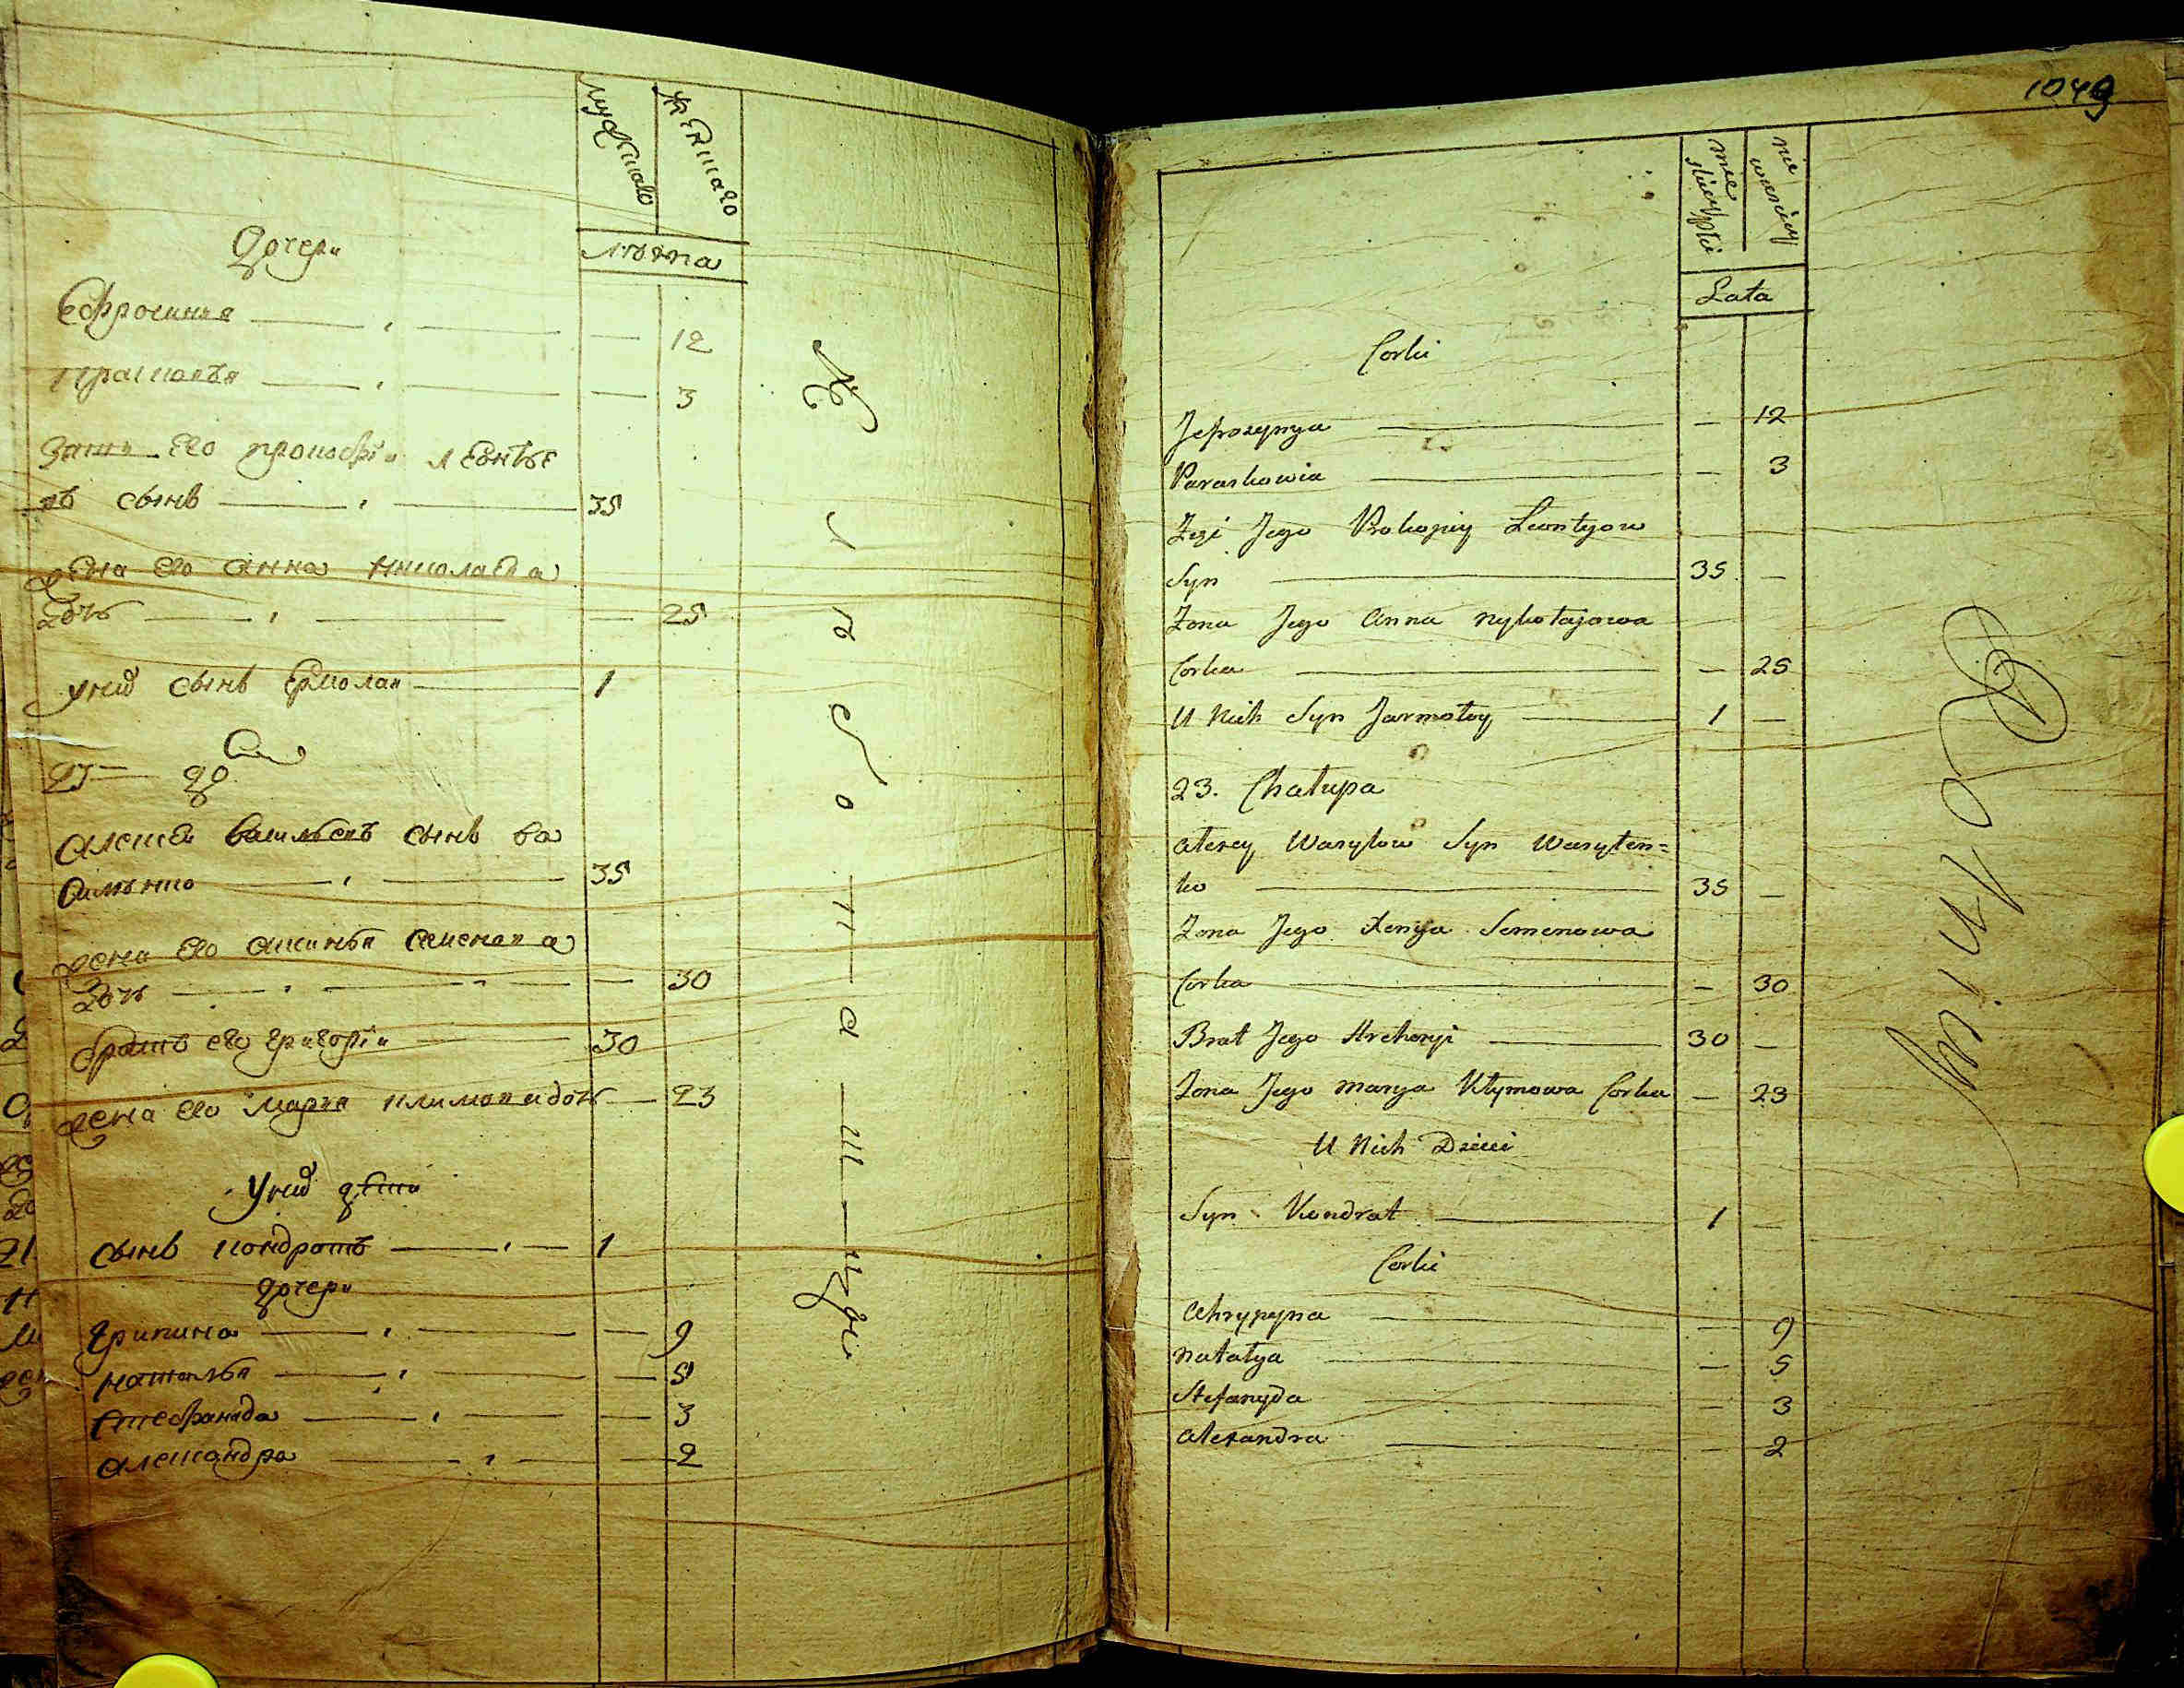 мужска
женска го
лѣта
дочери
Ефросинья — — — 12
Прасковья — — — 3
зять его прокофеи леонтье
въ сынъ — — 35
жена его анна николаева
дочь — — — 25
у них сынъ Ермолаи — 1
23 дво
алексеи васильевъ сынъ ва
силенко — — 35
жена его аксинья семенова
дочь — — — 30
братъ его григореи — 30
жена его марья климова дочь — 23
у них дети
сынъ кондратъ — — 1
дочери
грипина — — — 9
наталья — — — 5
стефанида — — — 3
александра — — — 2
1049
męz
nie
Lata
Corki
Jefrozynya — — 12
Paraskowia — — 3
Zezi Jego Prokopiy Leontyow
Syn — 35 —
Zona Jego Anna Nykołajowa
Corka — — 25
U Nich Syn Jarmołoy — 1 —
23. Chałupa
Alexey Wasylow Syn Wasylen=
ko — 35 —
Zona Jego Xenya Semenowa
Corka — — 30
Brat Jego Hrehoryi — 30 —
Zona Jego Marya Klymowa Corka — 23
U Nich Dzieci
Syn Kondrat — 1 —
Corki
Ahrypyna — — 9
Natalya — — 5
Stefanyda — — 3
Alexandra — — 2